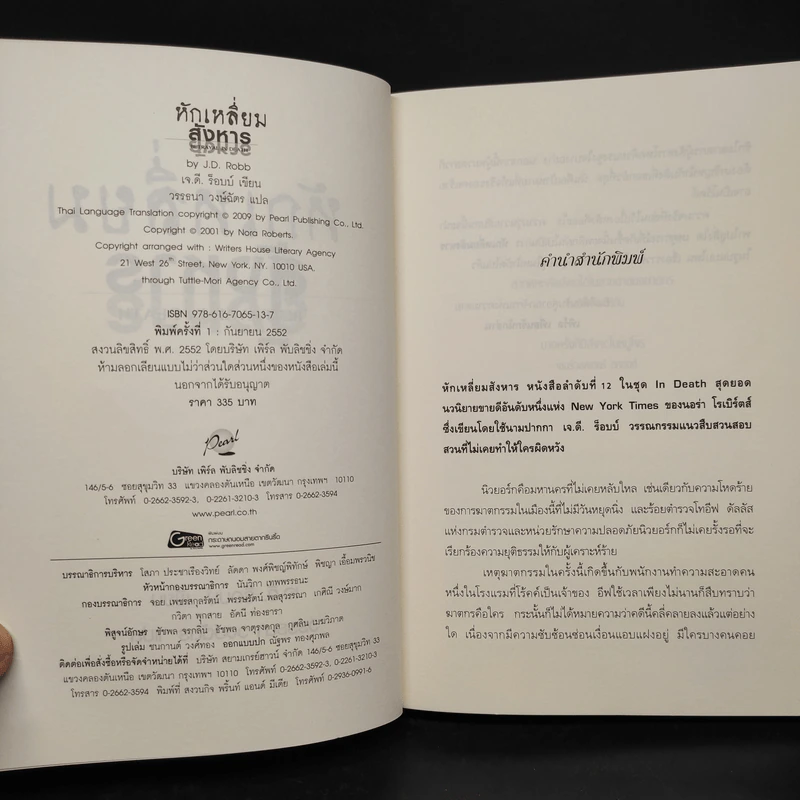 หักเหลี่ยม
สังหาร
BETRAYAL IN DEATH
by J.D. Robb
เจ.ดี. ร็อบบ์ เขียน
วรรธนา วงษ์ฉัตร แปล
Thai Language Translation copyright © 2009 by Pearl Publishing Co., Ltd.
Copyright © 2001 by Nora Roberts.
Copyright arranged with : Writers House Literary Agency
21 West 26th Street, New York, NY. 10010 USA.
through Tuttle-Mori Agency Co., Ltd.
ISBN 978-616-7065-13-7
พิมพ์ครั้งที่ 1 : กันยายน 2552
สงวนลิขสิทธิ์ พ.ศ. 2552 โดยบริษัท เพิร์ล พับลิชชิ่ง จำกัด
ห้ามลอกเลียนแบบไม่ว่าส่วนใดส่วนหนึ่งของหนังสือเล่มนี้
นอกจากได้รับอนุญาต
ราคา 335 บาท
Pearl
บริษัท เพิร์ล พับลิชชิ่ง จำกัด
146/5-6 ซอยสุขุมวิท 33 แขวงคลองตันเหนือ เขตวัฒนา กรุงเทพฯ 10110
โทรศัพท์ 0-2662-3592-3, 0-2261-3210-3 โทรสาร 0-2662-3594
www.pearl.co.th
Green Read
กระดาษถนอมสายตากรีนรี้ด
www.greenread.com
บรรณาธิการบริหาร โสภา ประชาเรืองวิทย์ ลัดดา พงศ์พิชญ์พิทักษ์ พิชญา เอื้อมพรวนิช
หัวหน้ากองบรรณาธิการ นันวิภา เทพพรธนะ
กองบรรณาธิการ จอย เพชรสกุลรัตน์ พรรษรัตน์ พลสุวรรณา เกศิณี วงษ์มาก
กวิตา พุกสาย อัคนี ทองธารา
พิสูจน์อักษร ชัชพล จรกลิ่น อัชพล จาตุรงคกุล กุศลิน เมฆวิภาต
รูปเล่ม ชนกานต์ วงศ์ทอง ออกแบบปก ณัฐพร ทองศุภผล
ติดต่อเพื่อสั่งซื้อหรือจัดจำหน่ายได้ที่ บริษัท สยามเกรย์ฮาวน์ จำกัด 146/5-6 ซอยสุขุมวิท 33
แขวงคลองตันเหนือ เขตวัฒนา กรุงเทพฯ 10110 โทรศัพท์ 0-2662-3592-3, 0-2261-3210-3
โทรสาร 0-2662-3594 พิมพ์ที่ สงวนกิจ พริ้นท์ แอนด์ มีเดีย โทรศัพท์ 0-2936-0991-6
คำนำสำนักพิมพ์
หักเหลี่ยมสังหาร หนังสือลำดับที่ 12 ในชุด In Death สุดยอด
นวนิยายขายดีอันดับหนึ่งแห่ง New York Times ของนอร่า โรเบิร์ตส์
ซึ่งเขียนโดยใช้นามปากกา เจ.ดี. ร็อบบ์ วรรณกรรมแนวสืบสวนสอบ
สวนที่ไม่เคยทำให้ใครผิดหวัง
นิวยอร์กคือมหานครที่ไม่เคยหลับใหล เช่นเดียวกับความโหดร้าย
ของการฆาตกรรมในเมืองนี้ที่ไม่มีวันหยุดนิ่ง และร้อยตำรวจโทอีฟ ดัลลัส
แห่งกรมตำรวจและหน่วยรักษาความปลอดภัยนิวยอร์กก็ไม่เคยรั้งรอที่จะ
เรียกร้องความยุติธรรมให้กับผู้เคราะห์ร้าย
เหตุฆาตกรรมในครั้งนี้เกิดขึ้นกับพนักงานทำความสะอาดคน
หนึ่งในโรงแรมที่โร้คค์เป็นเจ้าของ อีฟใช้เวลาเพียงไม่นานก็สืบทราบว่า
ฆาตกรคือใคร กระนั้นก็ไม่ได้หมายความว่าคดีนี้คลี่คลายลงแล้วแต่อย่าง
ใด เนื่องจากมีความซับซ้อนซ่อนเงื่อนแอบแฝงอยู่ มีใครบางคนคอย